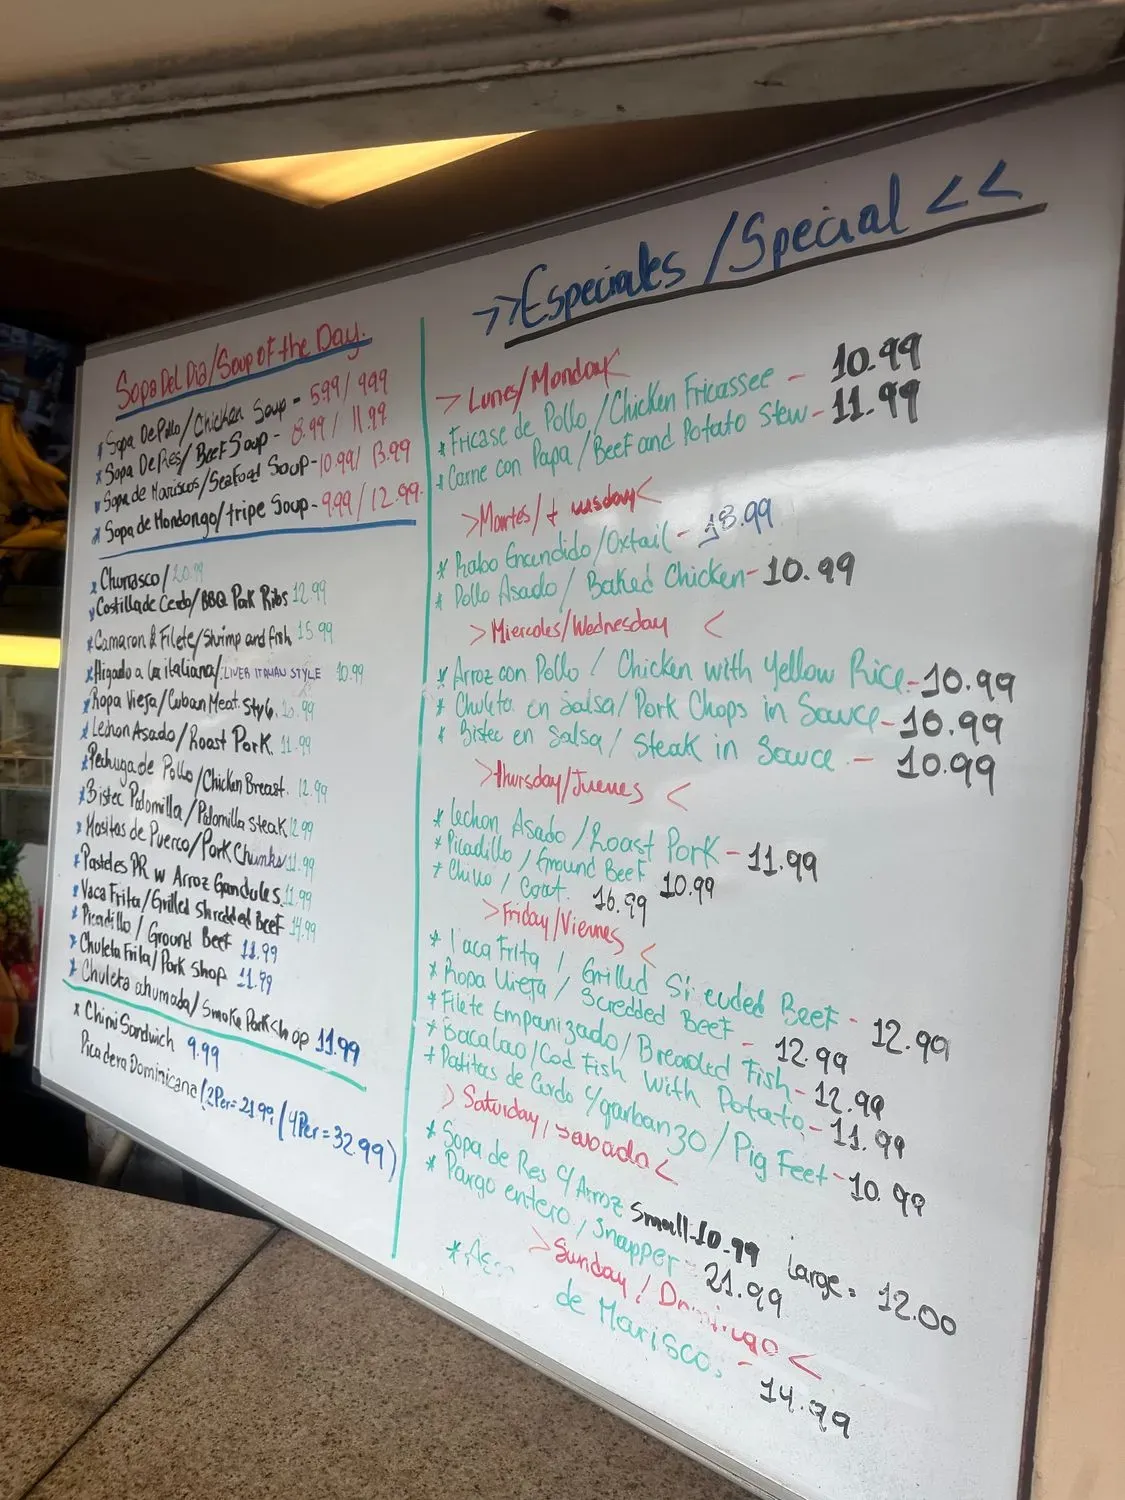 Sopa Del Dia/Soup of the Day.
* Sopa De Pollo/Chicken Soup - 5.99/ 9.99
* Sopa De Res/ Beef Soup - 8.99/ 11.99
* Sopa de Mariscos/Seafood Soup - 10.99/ 13.99
* Sopa de Mondongo/tripe Soup - 9.99 / 12.99.
* Churrasco/ 20.99
* Costilla de Cerdo/BBQ Pork Ribs 12.99
* Camaron & Filete/Shrimp and fish 15.99
* Higado a la italiana/LIVER ITALIAN STYLE 10.99
* Ropa Vieja/Cuban Meat Style.
* Lechon Asado/Roast Pork. 11.99
* Pechuga de Pollo/Chicken Breast. 12.99
* Bistec Palomilla/Palomilla steak 12.99
* Masitas de Puerco/Pork Chunks 11.99
* Pasteles PR w Arroz Gandules 11.99
* Vaca Frita/Grilled Shredded Beef 14.99
* Picadillo/Ground Beef 11.99
* Chuleta Frita/Pork Shop 11.99
* Chuleta ahumada/Smoke Pork shop 11.99
* Chimi Sandwich 9.99
Picadera Dominicana (2Per=21.99, (4Per=32.99)
>>Especiales/Special<<
>Lunes/Monday<
* Fricase de Pollo/Chicken Fricassee - 10.99
* Carne con Papa/Beef and Potato Stew - 11.99
>Martes/tuesday<
* Rabo Encendido/Oxtail - 18.99
* Pollo Asado/ Baked Chicken - 10.99
>Miercoles/Wednesday <
* Arroz con Pollo / Chicken with Yellow Rice - 10.99
* Chuleta en Salsa/ Pork Chops in Sauce - 10.99
* Bistec en Salsa/ Steak in Sauce - 10.99
>thursday/Jueves <
* Lechon Asado /Roast Pork - 11.99
* Picadillo/Ground Beef 10.99
* Chivo / Goat. 16.99
>Friday/Viernes <
* Vaca Frita / Grilled Sh euded Beef - 12.99
* Ropa Vieja / Scredded Beef - 12.99
* Filete Empanizado/ Breaded Fish - 12.99
* Bacalao/Cod Fish With Potato, - 11.99
* Patitas de Cerdo c/garbanzo/Pig Feet - 10.99
>Saturday/Sabado<
* Sopa de Res c/Arroz Small - 10.99 Large = 12.00
* Pargo entero/snapper - 21.99
>Sunday / Domingo <
* de Marisco, - 14.99